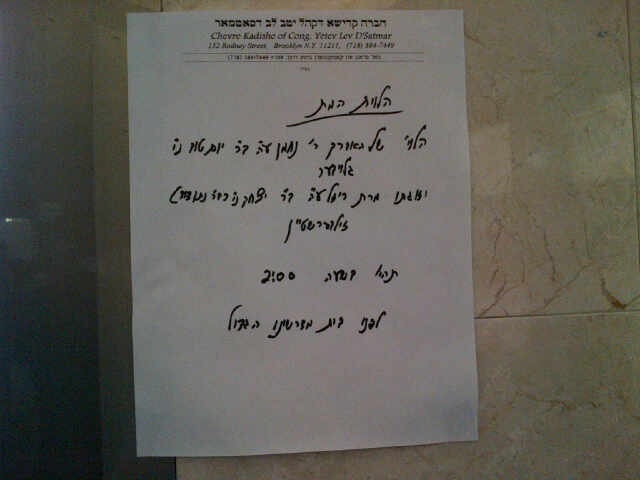 חברה קדישא דקהל יטב לב דסאטמאר
Chevre Kadishe of Cong. Yetev Lev D'Satmar
152 Rodney Street, Brooklyn N.Y. 11211, (718) 384-7449
הלוית המת
הלוי' של האברך ר' נחמן ע"ה ב"ר יום טוב ני'
גלויבער
וזוגתו מרת רייזל ע"ה ב"ר יצחק ני'
זילבערשטיין
תהי' בשעה 2:00
לפני בית מדרשינו הגדול